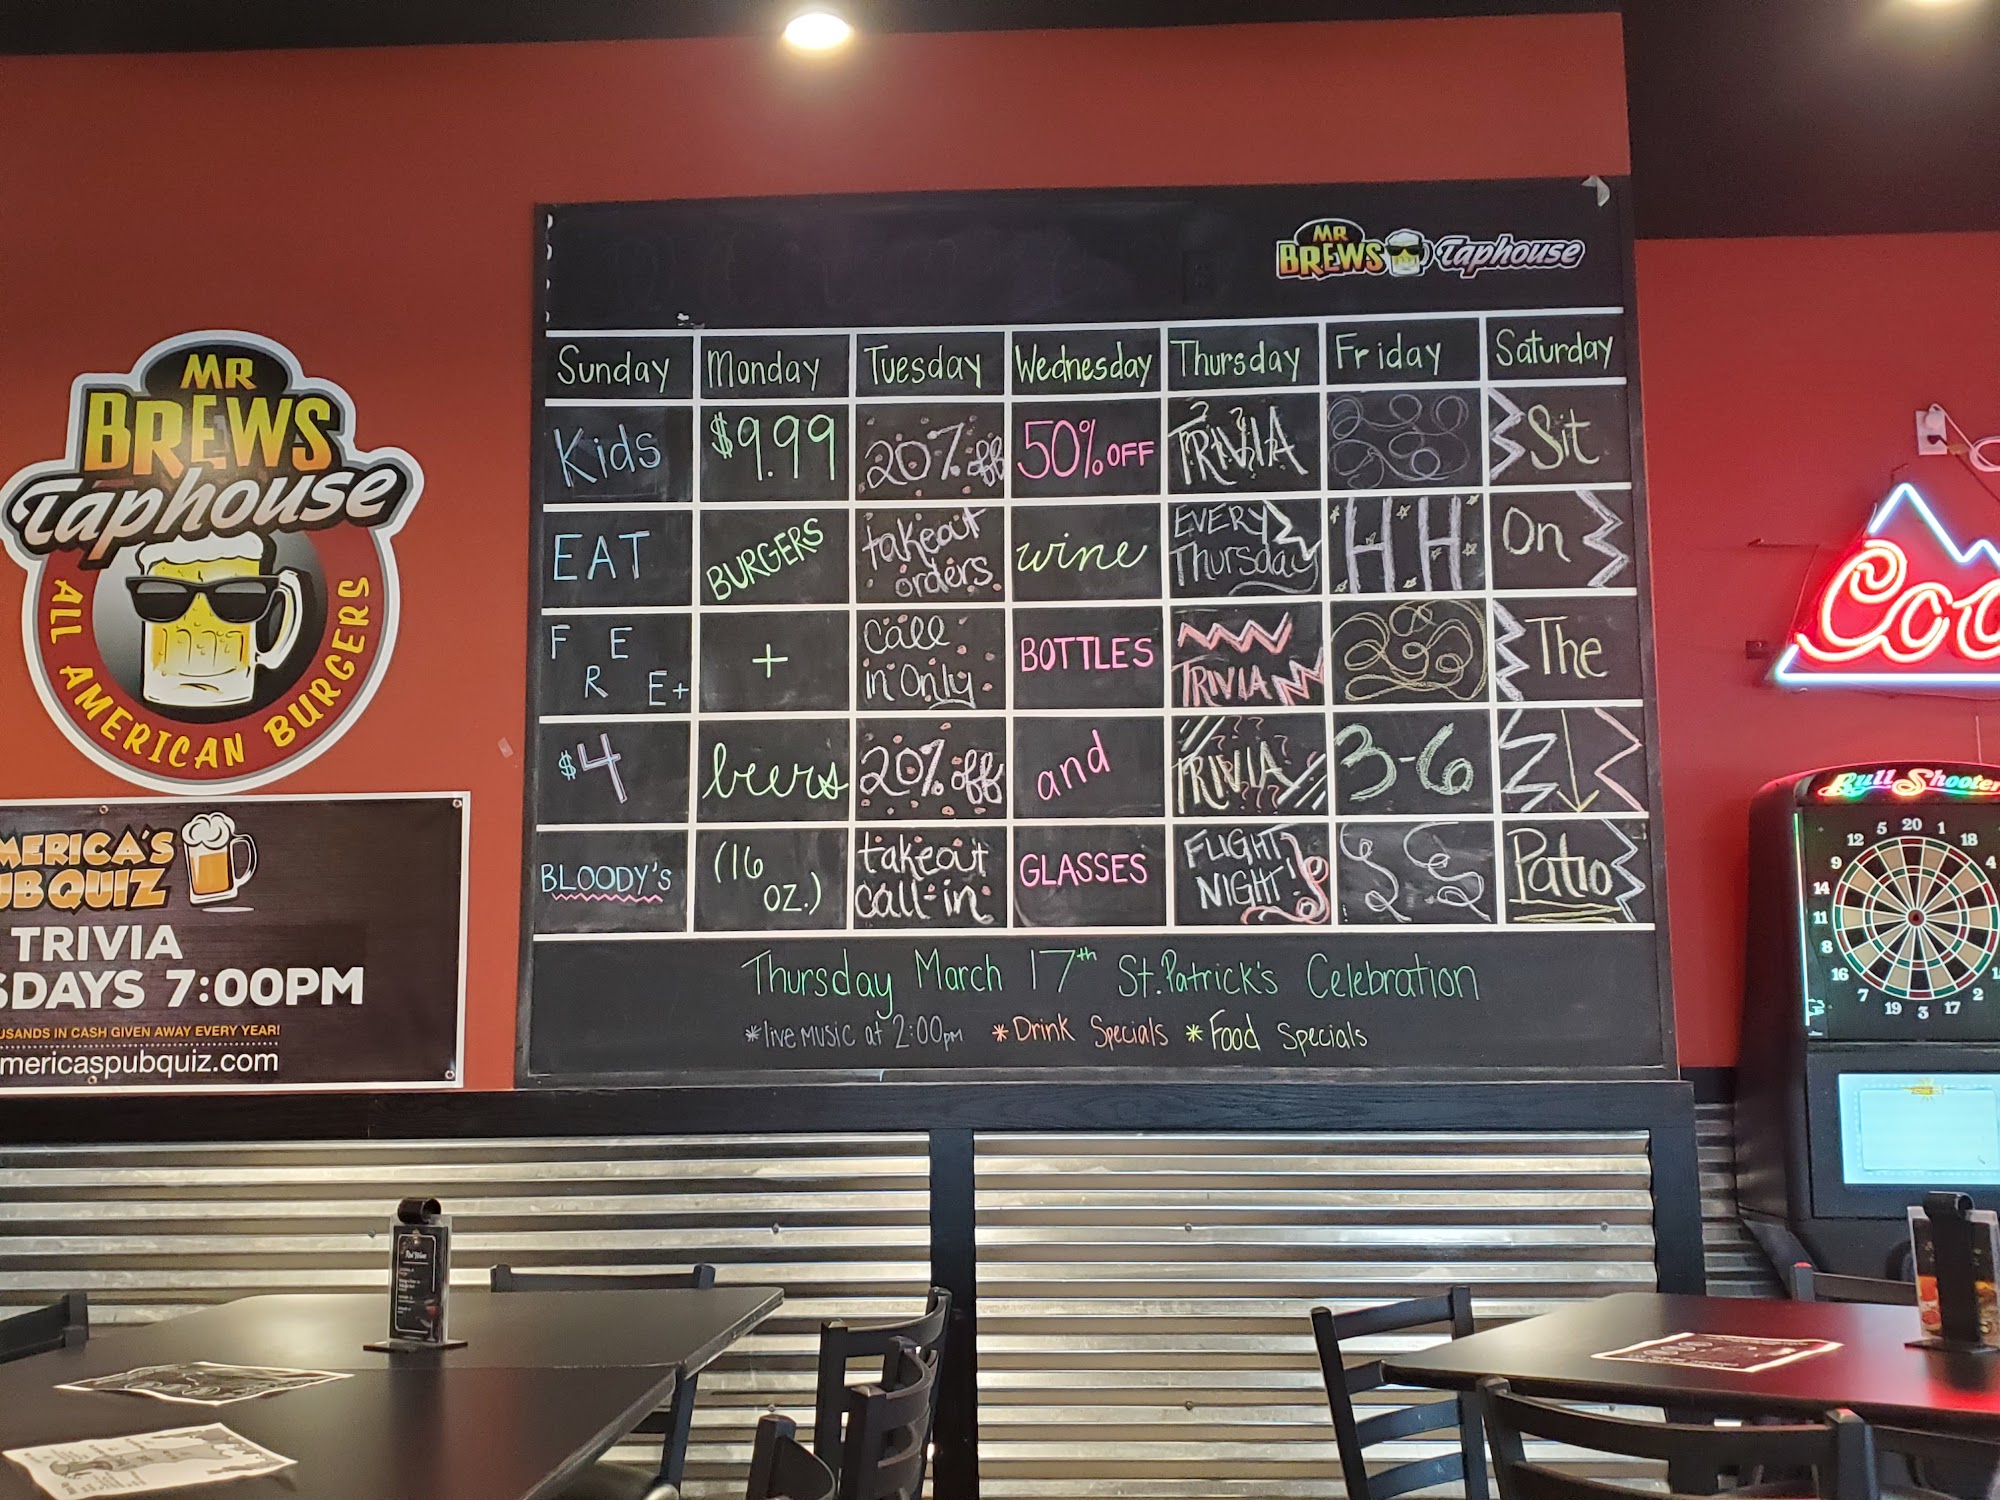 MR
BREWS Taphouse
Sunday Monday Tuesday Wednesday Thursday Friday Saturday
Kids $9.99 20% off 50% OFF TRIVIA Sit
EAT BURGERS takeout orders wine EVERY Thursday HH On
FREE+ + call in Only BOTTLES TRIVIA The
$4 beers 20% off and TRIVIA 3-6
BLOODY'S (16 oz.) takeout call-in GLASSES FLIGHT NIGHT! Patio
Thursday March 17th St. Patrick's Celebration
*live music at 2:00pm *Drink Specials *Food Specials
MR
BREWS
Taphouse
ALL AMERICAN BURGERS
MERICA'S
UB QUIZ
TRIVIA
SDAYS 7:00PM
USANDS IN CASH GIVEN AWAY EVERY YEAR!
mericaspubquiz.com
Coo
Bull Shooter
12 5 20 1 18
9
14
11
8
16
7 19 3 17 2
Red Wine